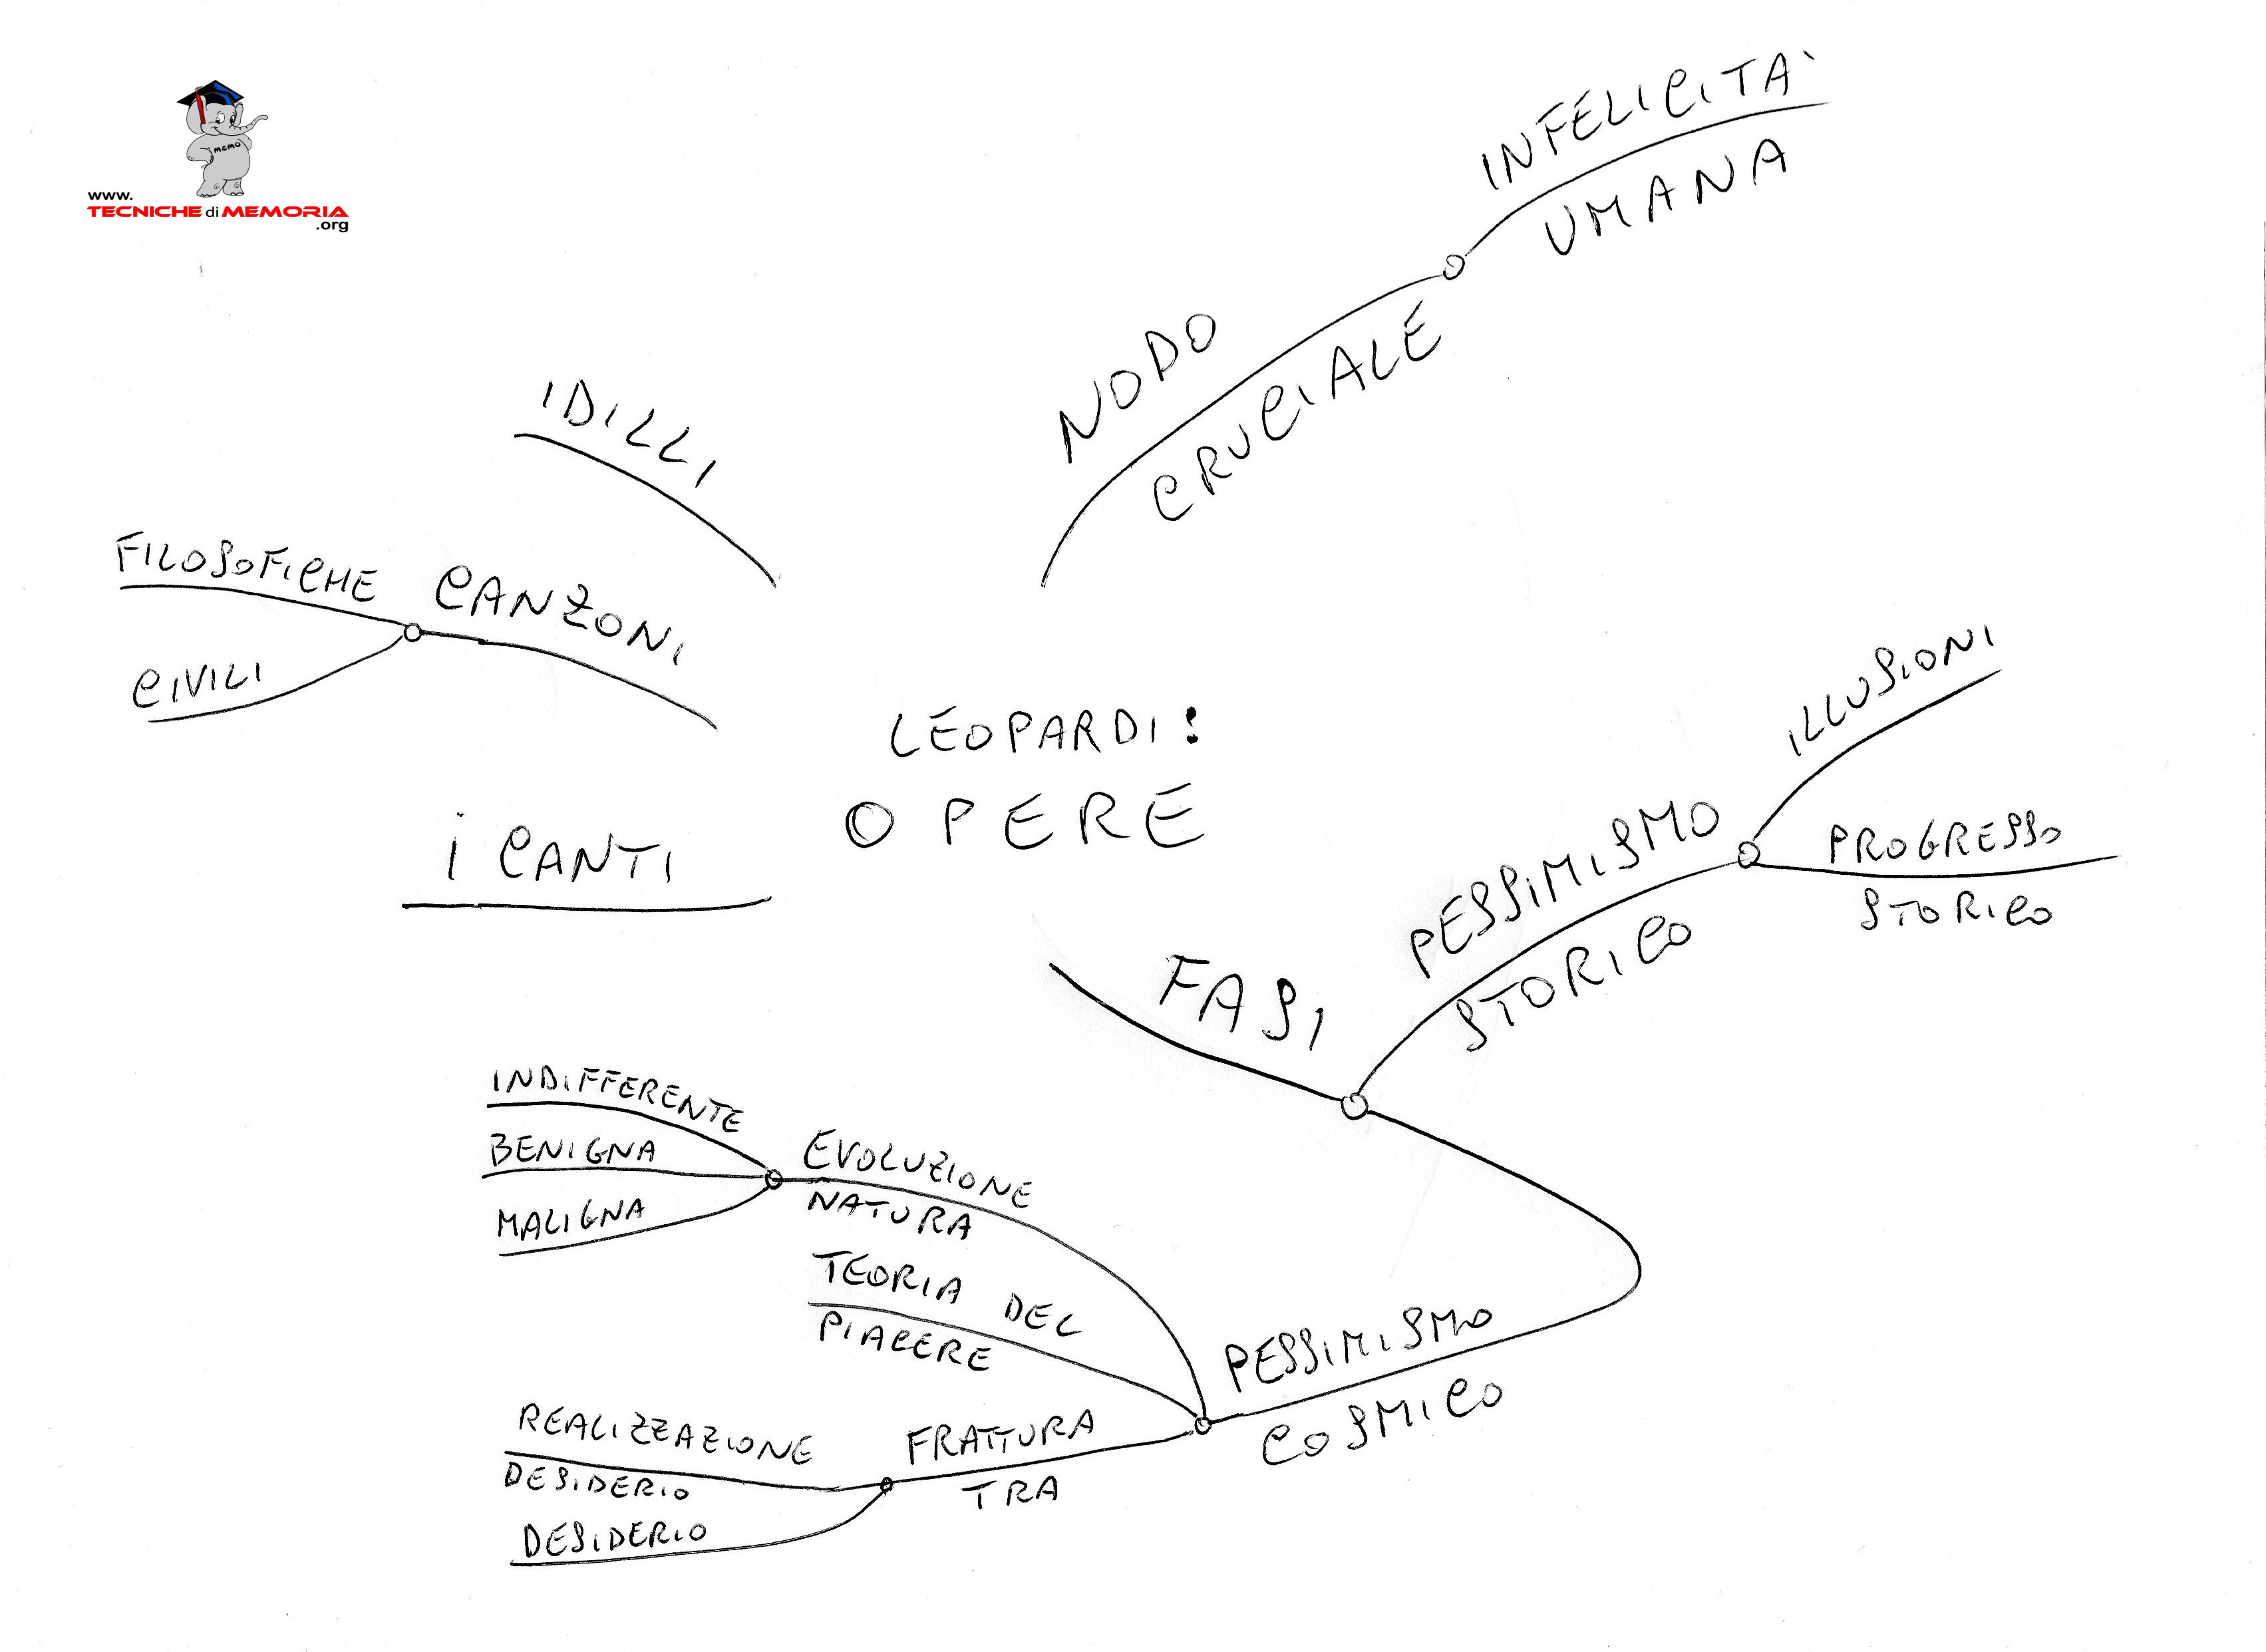 www.
TECNICHE di MEMORIA
.org
MEMO
LEOPARDI:
OPERE
NODO
CRUCIALE
INFELICITA'
UMANA
FASI
PESSIMISMO
STORICO
ILLUSIONI
PROGRESSO
STORICO
PESSIMISMO
COSMICO
EVOLUZIONE
NATURA
INDIFFERENTE
BENIGNA
MALIGNA
TEORIA DEL
PIACERE
FRATTURA
TRA
REALIZZAZIONE
DESIDERIO
DESIDERIO
I CANTI
CANZONI
FILOSOFICHE
CIVILI
IDILLI